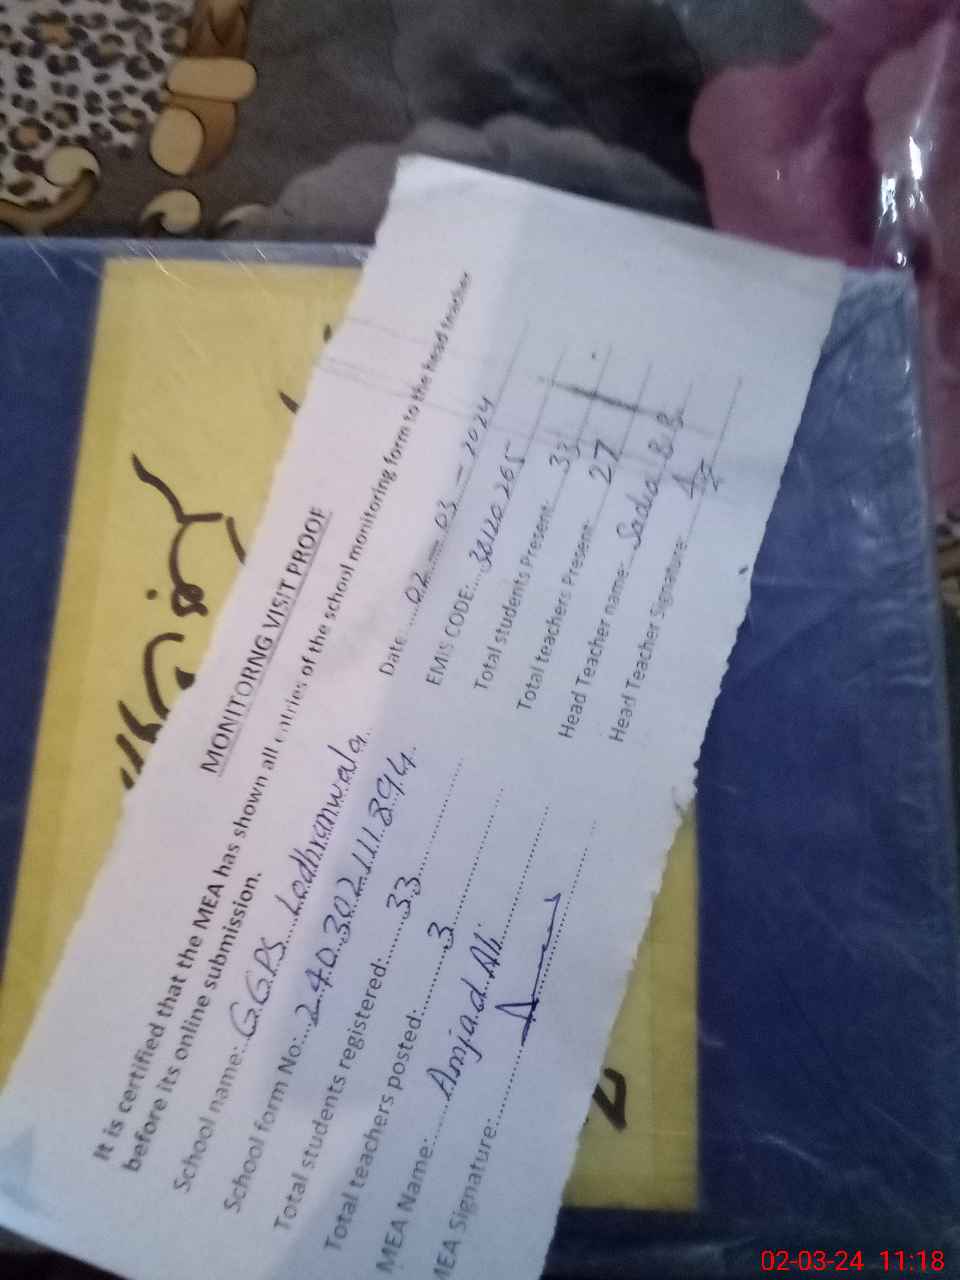 MONITORNG VISIT PROOF
It is certified that the MEA has shown all entries of the school monitoring form to the head teacher
before its online submission.
School name: G.G.P.S Lodhranwala Date: 02-03-2024
School form No: 240302111894 EMIS CODE:
Total students registered: 33 Total students Present 33
Total teachers posted: 3 Total teachers Present: 27
MEA Name: Amjad Ali Head Teacher name: Sadia
MEA Signature: Head Teacher Signature:
02-03-24 11:18